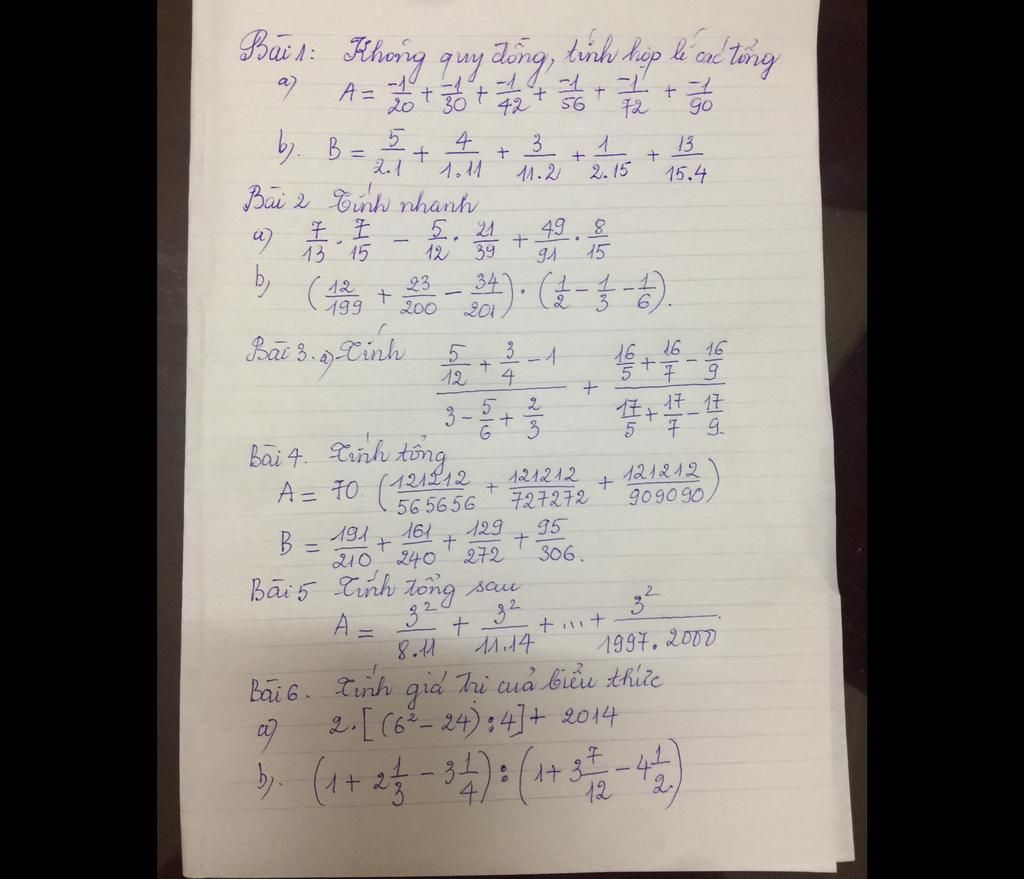 Bài 1: Không quy đồng, tính hợp lí các tổng
a) A = -1/20 + -1/30 + -1/42 + -1/56 + -1/72 + -1/90
b). B = 5/2.1 + 4/1.11 + 3/11.2 + 1/2.15 + 13/15.4
Bài 2 Tính nhanh
a) 7/13 . 7/15 - 5/12 . 21/39 + 49/91 . 8/15
b, (12/199 + 23/200 - 34/201) . (1/2 - 1/3 - 1/6).
Bài 3. a) Tính (5/12 + 3/4 - 1)/(3 - 5/6 + 2/3) + (16/5 + 16/7 - 16/9)/(17/5 + 17/7 - 17/9)
Bài 4. Tính tổng
A = 70. (121212/565656 + 121212/727272 + 121212/909090)
B = 191/210 + 161/240 + 129/272 + 95/306.
Bài 5 Tính tổng sau
A = 3²/8.11 + 3²/11.14 + ... + 3²/1997.2000
Bài 6. Tính giá trị cuả biểu thức
a) 2.[(6² - 24) : 4] + 2014
b). (1 + 2 1/3 - 3 1/4) : (1 + 3 7/12 - 4 1/2)